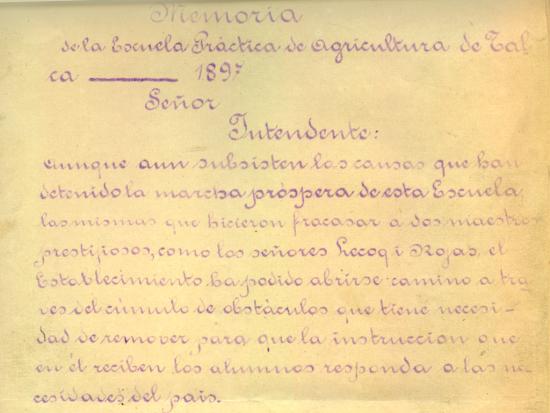 Memoria
de la Escuela Práctica de Agricultura de Tal-
ca ——— 1897
Señor
Intendente:
Aunque aun subsisten las causas que han
detenido la marcha próspera de esta Escuela,
las mismas que hicieron fracasar á dos maestros
prestijiosos, como los señores Lecoq i Rojas, el
Establecimiento ha podido abrirse camino a tra-
ves del cúmulo de obstáculos que tiene necesi-
dad de remover para que la instruccion que
en él reciben los alumnos responda a las ne-
cesidades del pais.